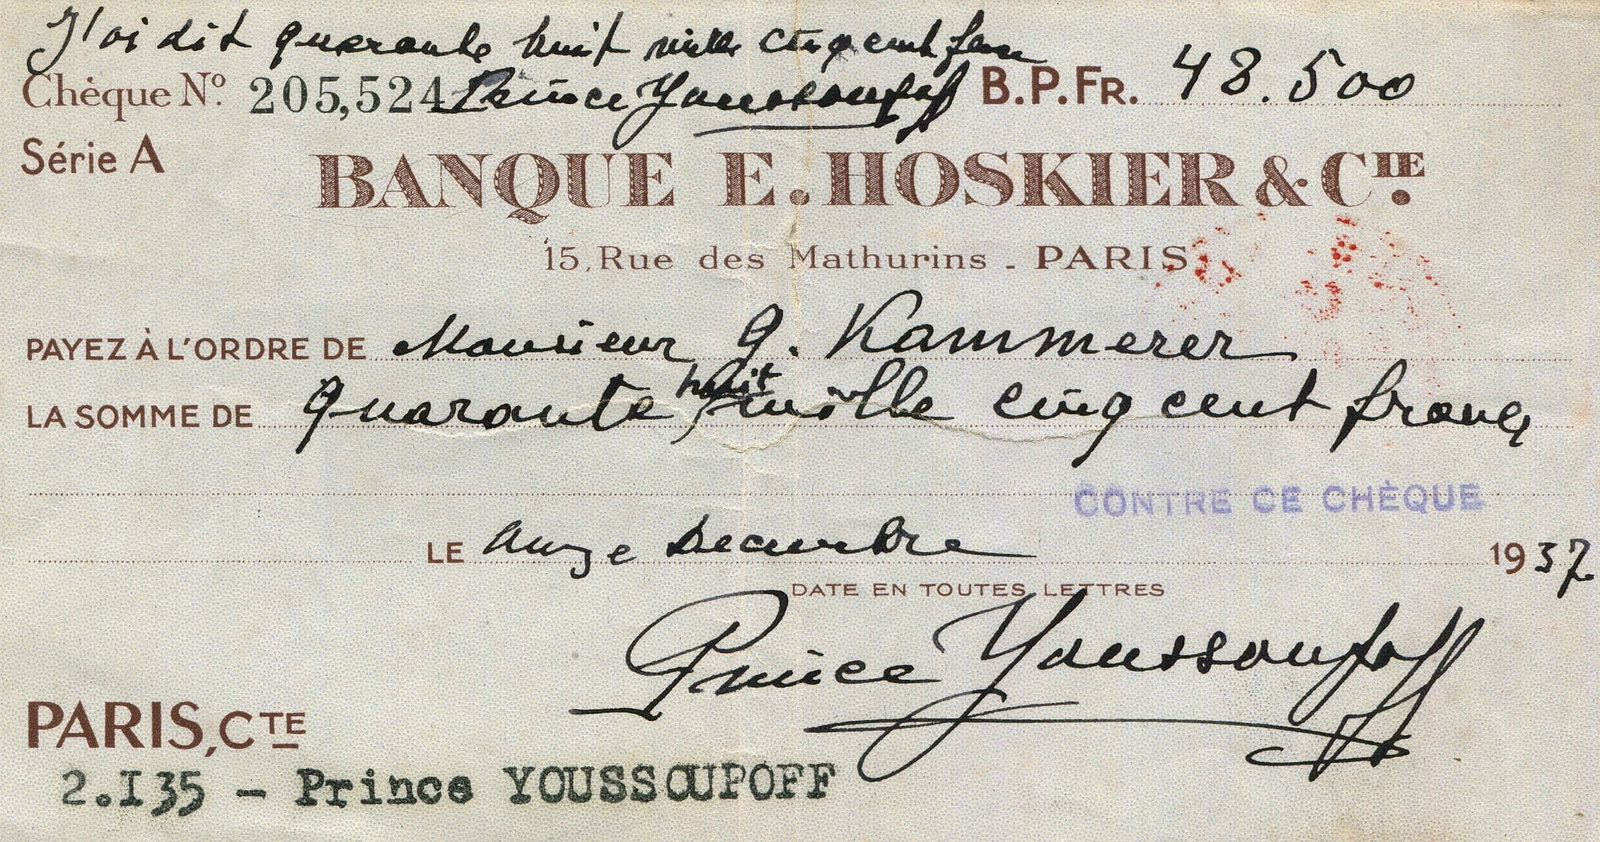 J'ai dit quarante huit mille cinq cent fra
Chèque No. 205,524 Prince Youssoupoff B.P.Fr. 48.500
Série A
BANQUE E. HOSKIER & CIE.
15, Rue des Mathurins - PARIS
PAYEZ À L'ORDRE DE Monsieur G. Kammerer
huit
LA SOMME DE quarante mille cinq cent francs
CONTRE CE CHÈQUE
LE onze Decembre 1937.
DATE EN TOUTES LETTRES
Prince Youssoupoff
PARIS, CTE
2.135 - Prince YOUSSOUPOFF